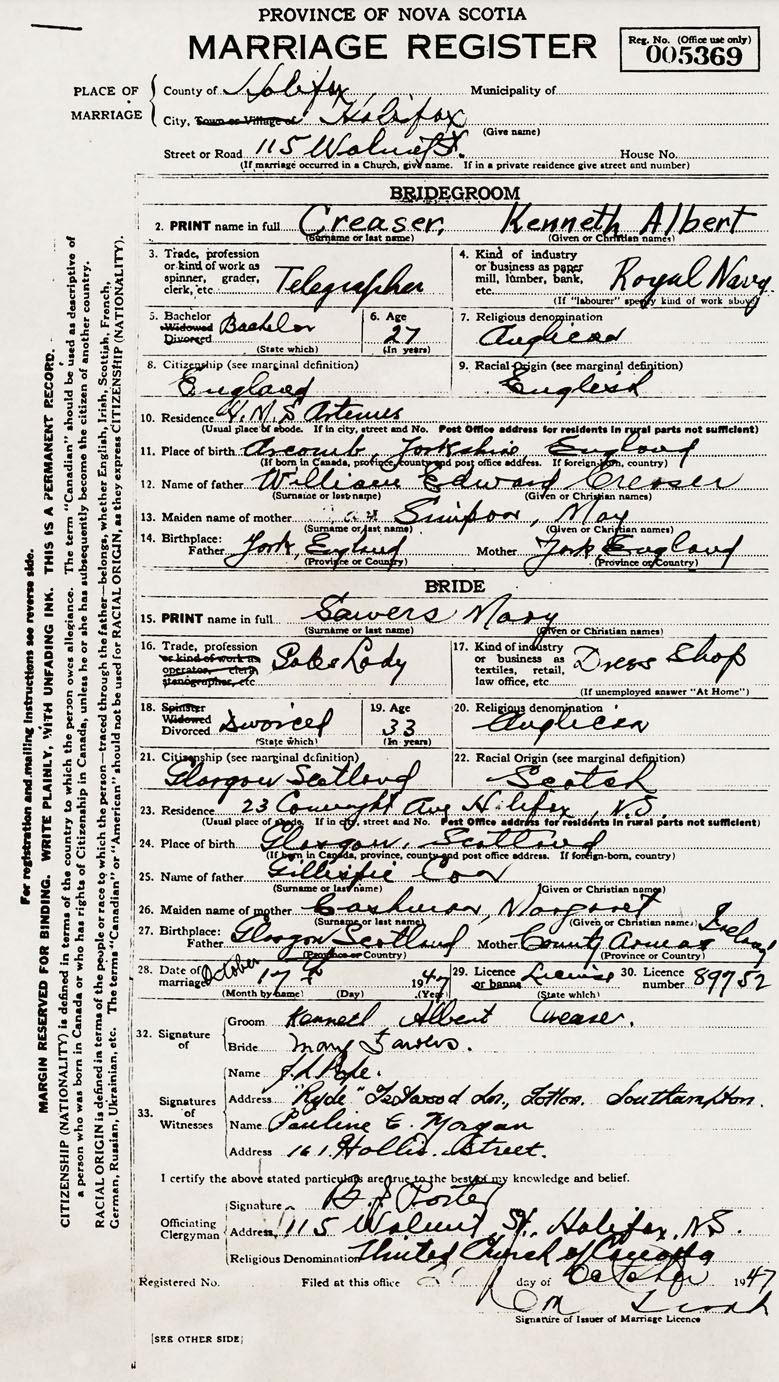 PROVINCE OF NOVA SCOTIA
MARRIAGE REGISTER
Reg. No. (Office use only)
005369
PLACE OF MARRIAGE
County of Halifax Municipality of
City, Town or Village of Halifax
(Give name)
Street or Road 115 Walnut St. House No.
(If marriage occurred in a Church, give name. If in a private residence give street and number)
BRIDEGROOM
2. PRINT name in full Creaser, Kenneth Albert
(Surname or last name) (Given or Christian names)
3. Trade, profession or kind of work as spinner, grader, clerk, etc. Telegrapher
4. Kind of industry or business as paper mill, lumber, bank, etc. Royal Navy
(If "labourer" specify kind of work above)
5. Bachelor Widowed Divorced Bachelor
(State which)
6. Age 27
(In years)
7. Religious denomination
Anglican
8. Citizenship (see marginal definition)
England
9. Racial Origin (see marginal definition)
English
10. Residence H.M.S Artemis
(Usual place of abode. If in city, street and No. Post Office address for residents in rural parts not sufficient)
11. Place of birth Acomb, Yorkshire, England
(If born in Canada, province, county and post office address. If foreign-born, country)
12. Name of father William Edward Creaser
(Surname or last name) (Given or Christian names)
13. Maiden name of mother Simpson, May
(Surname or last name) (Given or Christian names)
14. Birthplace: Father York, England Mother York England
(Province or Country) (Province or Country)
BRIDE
15. PRINT name in full Sawers Mary
(Surname or last name) (Given or Christian names)
16. Trade, profession or kind of work as operator, clerk stenographer, etc Sales Lady
17. Kind of industry or business as textiles, retail, law office, etc Dress Shop
(If unemployed answer "At Home")
18. Spinster Widowed Divorced Divorced
(State which)
19. Age 33
(In years)
20. Religious denomination
Anglican
21. Citizenship (see marginal definition)
Glasgow Scotland
22. Racial Origin (see marginal definition)
Scotch
23. Residence 23 Connaught Ave Halifax, N.S.
(Usual place of abode. If in city, street and No. Post Office address for residents in rural parts not sufficient)
24. Place of birth Glasgow, Scotland
(If born in Canada, province, county and post office address. If foreign-born, country)
25. Name of father Gillespie
(Surname or last name) (Given or Christian names)
26. Maiden name of mother Margaret
(Surname or last name) (Given or Christian names)
27. Birthplace: Father Glasgow Scotland Mother County Ireland
(Province or Country) (Province or Country)
28. Date of marriage October 17 1947
(Month by name) (Day) (Year)
29. Licence or banns License
(State which)
30. Licence number 89752
32. Signature of
Groom Kenneth Albert Creaser.
Bride Mary Sawers.
33. Signatures of Witnesses
Name Pope.
Address "Ryde" Totton. Southampton.
Name Pauline E. Morgan
Address 161 Hollis Street.
I certify the above stated particulars are true to the best of my knowledge and belief.
Officiating Clergyman
Signature Porter
Address, 115 Walnut St., Halifax, N.S.
Religious Denomination United Church of Canada
Registered No. Filed at this office day of October 1947
Signature of Issuer of Marriage Licence
[SEE OTHER SIDE]
For registration and mailing instructions see reverse side.
MARGIN RESERVED FOR BINDING. WRITE PLAINLY, WITH UNFADING INK. THIS IS A PERMANENT RECORD.
CITIZENSHIP (NATIONALITY) is defined in terms of the country to which the person owes allegiance. The term "Canadian" should be used as descriptive of
a person who was born in Canada or who has rights of Citizenship in Canada, unless he or she has subsequently become the citizen of another country.
RACIAL ORIGIN is defined in terms of the people or race to which the person—traced through the father—belongs, whether English, Irish, Scottish, French,
German, Russian, Ukrainian, etc. The terms "Canadian" or "American" should not be used for RACIAL ORIGIN, as they express CITIZENSHIP (NATIONALITY).